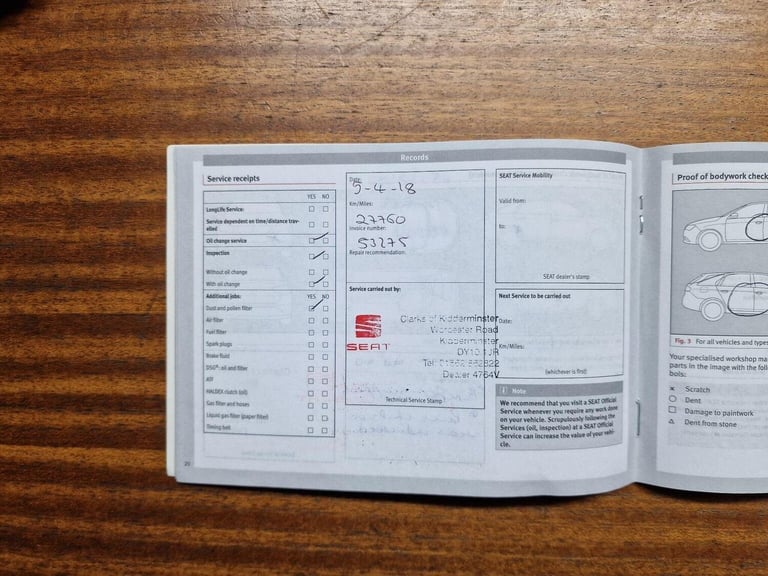 Records
Service receipts
YES NO
LongLife Service:
Service dependent on time/distance trav-
elled
Oil change service
Inspection
Without oil change
With oil change
Additional jobs: YES NO
Dust and pollen filter
Air filter
Fuel filter
Spark plugs
Brake fluid
DSG®: oil and filter
ATF
HALDEX clutch (oil)
Gas filter and hoses
Liquid gas filter (paper filter)
Timing belt
20
Date:
5-4-18
Km/Miles:
27760
Invoice number:
53275
Repair recommendation:
Service carried out by:
SEAT
Clarks of Kidderminster
Worcester Road
Kidderminster
DY10 1JR
Tel:
Dealer 4764V
Technical Service Stamp
SEAT Service Mobility
Valid from:
to:
SEAT dealer's stamp
Next Service to be carried out
Date:
Km/Miles:
(whichever is first)
i Note
We recommend that you visit a SEAT Official
Service whenever you require any work done
on your vehicle. Scrupulously following the
Services (oil, inspection) at a SEAT Official
Service can increase the value of your vehi-
cle.
Proof of bodywork check
Fig. 3 For all vehicles and types
Your specialised workshop ma
parts in the image with the follo
bols:
× Scratch
○ Dent
□ Damage to paintwork
△ Dent from stone